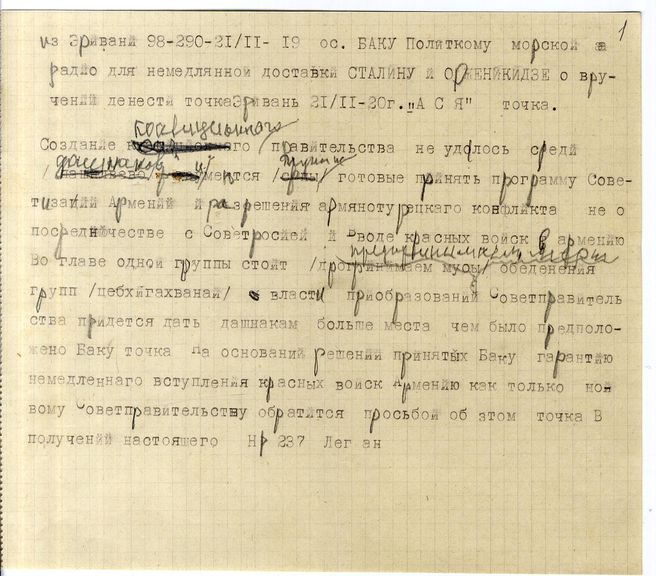 1
из Эривани 98-290-21/II- 19 ос. БАКУ Политкому морской а
радио для немедлянной доставки СТАЛИНУ и ОРЖЕНИКИДЗЕ о вру-
чений денести точкаЭривань 21/II-20г."А С Я" точка.
коалиционного
Создание правительства не удолось среди
дашнаков группы
/ имется / готовые принять программу Сове-
тизаций Армений й разрешения армянотурецкаго конфликта не о
посредничестве с Советросией й вводе красных войск В армению
Во главе одной группы стойт /дрогринимаем мусы/ обеденения
групп /цебхйгахванай/ власти приобразований Советправитель
ства придется дать дашнакам больше места чем было предполо-
жено Баку точка На оснований решений принятых Баку гарантйю
немедленнаго вступления красных войск Армению как только ной
вому Советправительству обратйтся просьбой об этом точка В
получений настоящего Нр 237 Легран